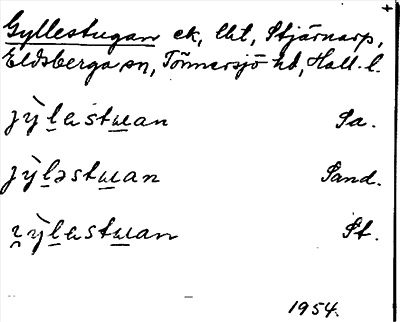 Gyllestugan ek, lht, Stjärnarp,
Eldsberga sn, Tönnersjö hd, Hall. l.
jỳlastuan Sa.
jỳləstuan Sand.
ɀỳlastuan St.
1954.